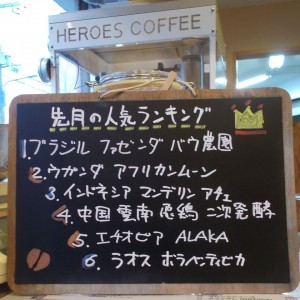 HEROES COFFEE
先月の人気ランキング
1.ブラジル ファゼンダ バウ農園
2.ウガンダ アフリカンムーン
3.インドネシア マンデリン アチェ
4.中国 雲南 二次発酵
5.エチオピア ALAKA
6.ラオス ボラベンティピカ